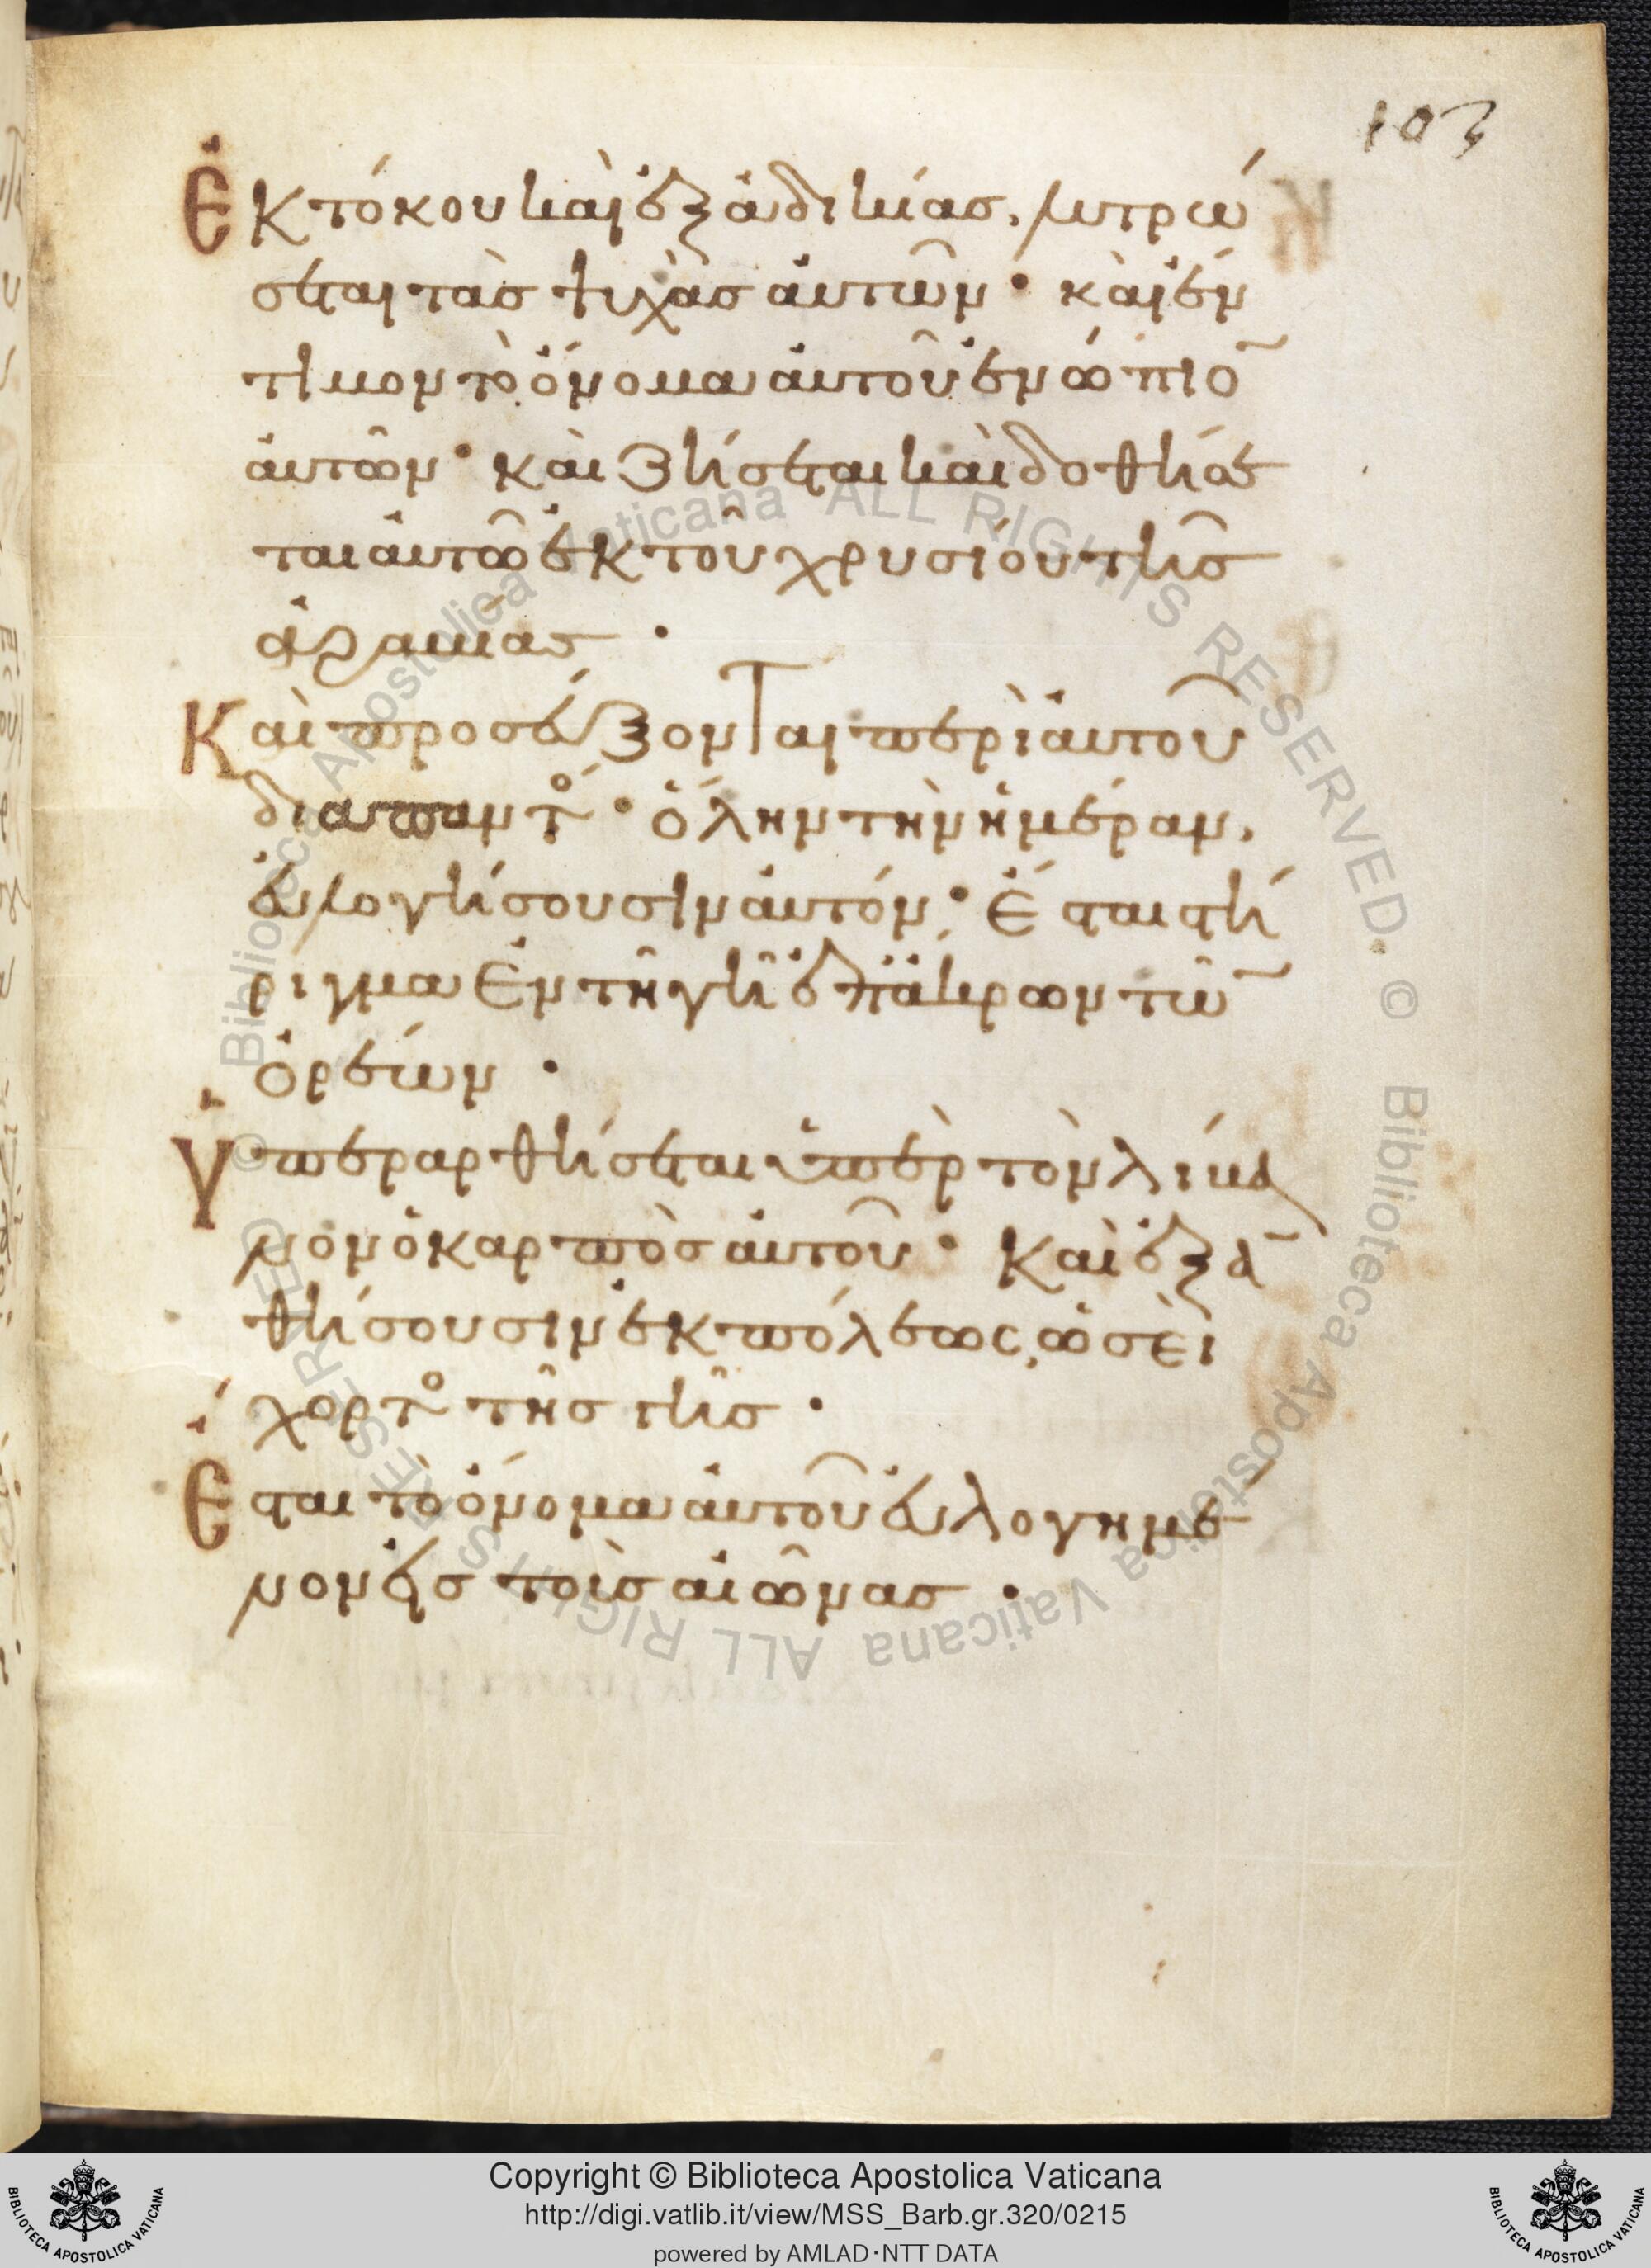 103
Ἐκ τόκου καὶ ἐξ ἀδικίας, λυτρώ
σεται τὰσ ψυχὰσ ἀυτῶν · κὰι ἔν
τιμον τὸ ὄνομα ἀυτοῦ ἐνώπιο̅
ἀυτῶν · κὰι ζήσεται κὰι δοθήσε
ται ἀυτῶ ἐκ τοῦ χρυσίου τῆσ
ἀραβίασ ·
Καὶ προσέυξονται περὶ ἀυτοῦ
διαπαντὸ · ὅλην τὴν ἡμέραν,
ἐυλογήσουσιν ἀυτόν · Ἔσται στή
ριγμα ἐν τῆ γῆ ἐπ ἄκρων τῶ̅
ὀρέων ·
Ὑπεραρθήσεται ὑπὲρ τὸν λίβα
νον ὁ καρπὸσ ἀυτοῦ · Καὶ ἐξα̅
θήσουσιν ἐκ πόλεως, ὡσὲι
χόρτο τῆσ γῆσ ·
Ἔσται τὸ ὄνομα ἀυτοῦ ἐυλογημέ
νον ἐισ τοὺσ αἰῶνασ ·
© Biblioteca Apostolica Vaticana ALL RIGHTS RESERVED. © Biblioteca Apostolica Vaticana ALL RIGHTS RESERVED
Copyright © Biblioteca Apostolica Vaticana
http://digi.vatlib.it/view/MSS_Barb.gr.320/0215
powered by AMLAD·NTT DATA
BIBLIOTECA APOSTOLICA VATICANA
BIBLIOTECA APOSTOLICA VATICANA